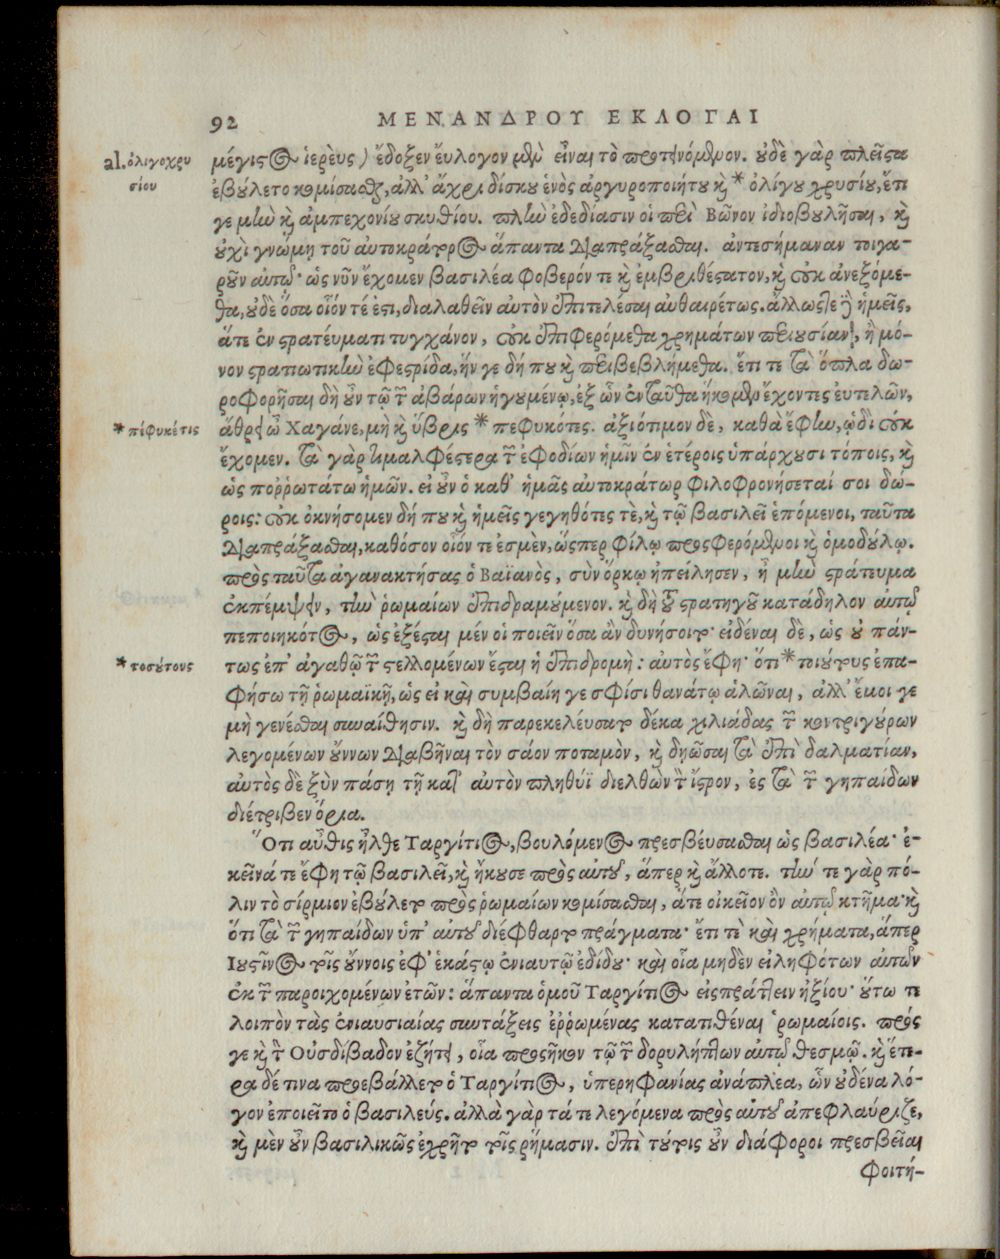 92 ΜΕΝΑΝΔΡΟΥ ΕΚΛΟΓΑΙ
al. ὀλιγοχρυ
σίου
μέγιστος ἱερεὺς) ἔδοξεν ἔυλογον μὲν εἶναι τὸ προτεινόμενον. οὐδὲ γὰρ πλεῖστα
ἐβούλετο κομίσασθαι, ἀλλ' ἄχρι δίσκου ἑνὸς ἀργυροποιήτου καὶ * ὀλίγου χρυσίου, ἔτι
γε μὴν καὶ ἀμπεχονίου σκυθίου. πλὴν ἐδεδίασιν οἱ περὶ Βῶνον ἰδιοβουλῆσαι, καὶ
οὐχὶ γνώμῃ τοῦ αὐτοκράτορος ἅπαντα διαπράξασθαι. ἀντεσήμαναν τοιγα-
ροῦν αὐτῷ· ὡς νῦν ἔχομεν βασιλέα φοβερόν τε καὶ ἐμβριθέστατον, καὶ οὐκ ἀνεξόμε-
θα, οὐδὲ ὅσα οἷόν τέ ἐστι, διαλαθεῖν αὐτὸν ἐπιτελέσαι αὐθαιρέτως. ἄλλως τε γὰρ ἡμεῖς,
ἅτε ἐν στρατέυματι τυγχάνον, οὐκ ἐπιφερόμεθα χρημάτων περιουσίαν, ἢ μό-
νον στρατιωτικὴν ἐφεστρίδα, ἥν γε δή που καὶ περιβεβλήμεθα. ἔτι τε τὰ ὅπλα δω-
ροφορῆσαι δὴ οὖν τῷ τῶν ἀβάρων ἡγουμένῳ, ἐξ ὧν ἐνταῦθα ἥκομεν ἔχοντες ἐυτελῶν,
* πέφυκέ τις
ἄθρει ὦ Χαγάνε, μὴ καὶ ὕβρις * πεφυκότες. ἀξιότιμον δὲ, καθὰ ἔφην, ᾧδι οὐκ
ἔχομεν. τὰ γὰρ τιμαλφέστερα τῶν ἐφοδίων ἡμῖν ἐν ἑτέροις ὑπάρχουσι τόποις, καὶ
ὡς ποῤῥωτάτω ἡμῶν. εἰ οὖν ὁ καθ' ἡμᾶς αὐτοκράτωρ φιλοφρονήσεταί σοι δώ-
ροις: οὐκ ὀκνήσομεν δή που καὶ ἡμεῖς γεγηθότες τὲ, καὶ τῷ βασιλεῖ ἑπόμενοι, ταῦτα
διαπράξασθαι, καθόσον οἷόν τε ἐσμὲν, ὥσπερ φίλῳ προσφερόμενοι καὶ ὁμοδούλῳ.
πρὸς ταῦτα ἀγανακτήσας ὁ Βαϊανὸς, σὺν ὅρκῳ ἠπείλησεν, ἦ μὴν στράτευμα
ἐκπέμψειν, τὴν ῥωμαίων ἐπιδραμούμενον. καὶ δὴ τοῦ στρατηγοῦ κατάδηλον αὐτῷ
πεποιηκότος, ὡς ἐξέσται μέν οἱ ποιεῖν ὅσα ἂν δυνήσοιτο· εἰδέναι δὲ, ὡς οὐ πάν-
* τοσούτους
τως ἐπ' ἀγαθῷ τῶν στελλομένων ἔσται ἡ ἐπιδρομὴ: αὐτὸς ἔφη· ὅτι * τοιούτους ἐπα-
φήσω τῇ ῥωμαϊκῇ, ὡς εἰ καὶ συμβαίη γε σφίσι θανάτῳ ἁλῶναι, ἀλλ' ἔμοι γε
μὴ γενέσθαι συναίσθησιν. καὶ δὴ παρεκελέυσατο δέκα χιλιάδας τῶν κοντριγούρων
λεγομένων οὔννων διαβῆναι τὸν σάον ποταμὸν, καὶ δῃῶσαι τὰ ἐπὶ δαλματίαν,
αὐτὸς δὲ ξὺν πάσῃ τῇ κατ' αὐτὸν πληθύϊ διελθὼν τὸν ἴστρον, ἐς τὰ τῶν γηπαίδων
διέτριβεν ὅρια.
Ὅτι αὖθις ἦλθε Ταργίτιος, βουλόμενος πρεσβέυσασθαι ὡς βασιλέα· ἐ-
κεῖνά τε ἔφη τῷ βασιλεῖ, καὶ ἤκουσε πρὸς αὐτοῦ, ἅπερ καὶ ἄλλοτε. τήν τε γὰρ πό-
λιν τὸ σίρμιον ἐβούλετο πρὸς ῥωμαίων κομίσασθαι, ἅτε οἰκεῖον ὂν αὐτῷ κτῆμα· καὶ
ὅτι τὰ τῶν γηπαίδων ὑπ' αὐτοῦ διέφθαρτο πράγματα· ἔτι τὲ καὶ χρήματα, ἅπερ
Ἰουστῖνος τοῖς οὔννοις ἐφ' ἑκάστῳ ἐνιαυτῷ ἐδίδου· καὶ οἷα μηδὲν εἰληφότων αὐτῶν
ἐκ τῶν παροιχομένων ἐτῶν: ἅπαντα ὁμοῦ Ταργίτιος εἰσπράττειν ἠξίου· οὕτω τε
λοιπὸν τὰς ἐνιαυσιαίας συντάξεις ἐῤῥωμένας κατατιθέναι ῥωμαίοις. πρός
γε καὶ τὸν Οὐσδίβαδον ἐζήτει, οἷα προσῆκον τῷ τῶν δορυλήπτων αὐτῷ θεσμῷ. καὶ ἕτε-
ρα δέ τινα προεβάλλετο ὁ Ταργίτιος, ὑπερηφανίας ἀνάπλεα, ὧν οὐδένα λό-
γον ἐποιεῖτο ὁ βασιλεύς. ἀλλὰ γὰρ τά τε λεγόμενα πρὸς αὐτοῦ ἀπεφλαύριζε,
καὶ μὲν οὖν βασιλικῶς ἐχρῆτο τοῖς ῥήμασιν. ἐπὶ τούτοις οὖν διάφοροι πρεσβεῖαι
φοιτή-